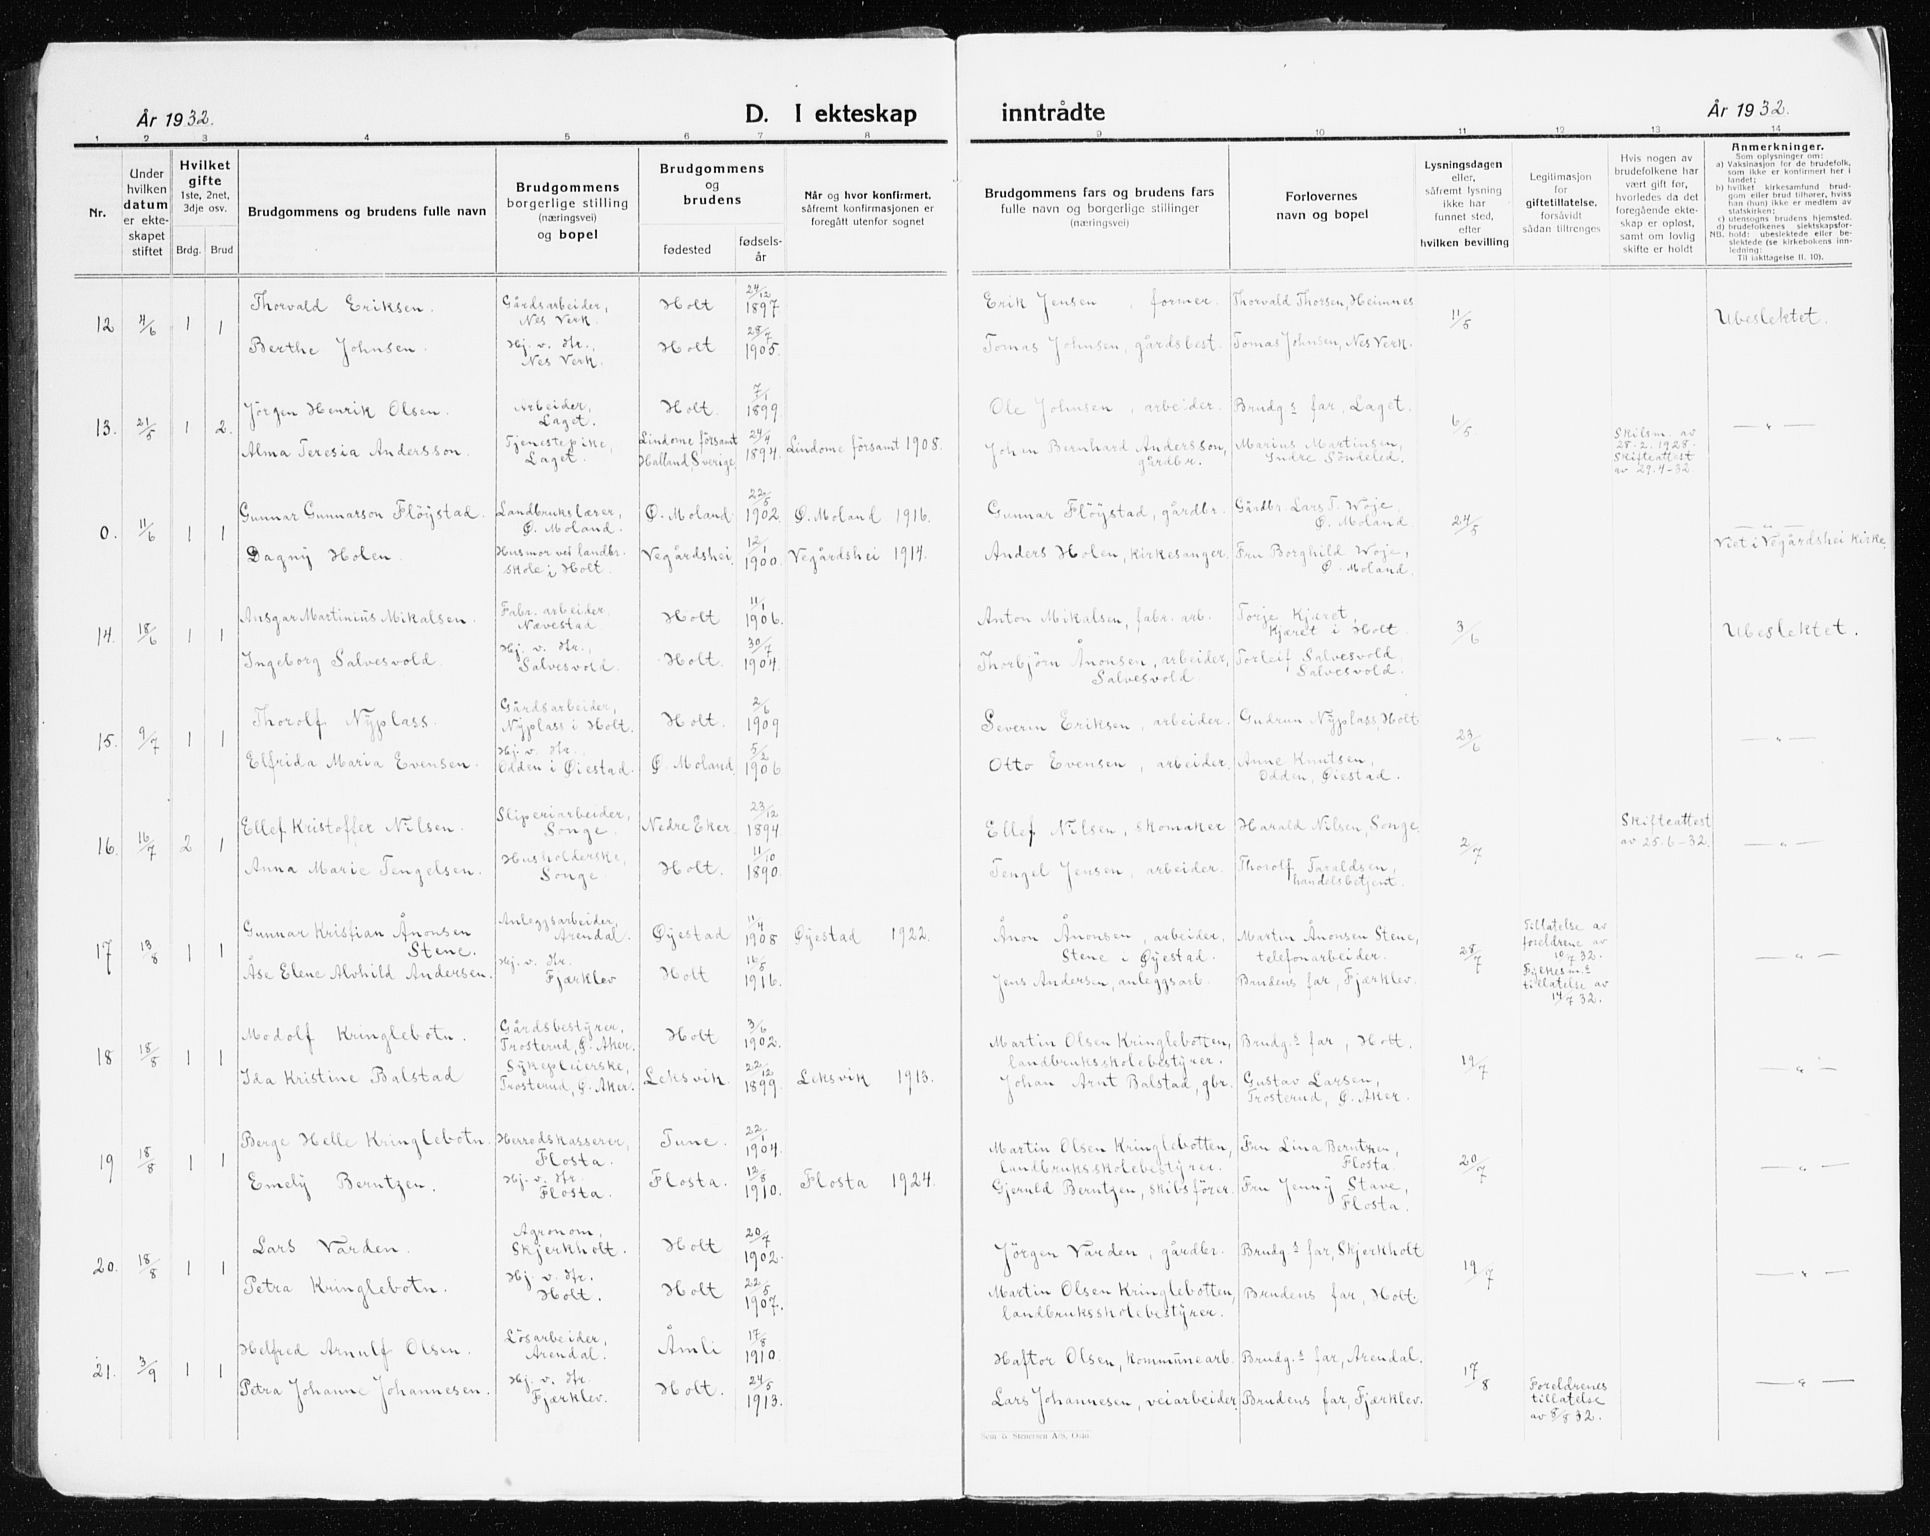 År 1932.
D. I ekteskap
inntrådte
År 1932.
1 2 3 4 5 6 7 8 9 10 11 12 13 14
Nr.
Under hvilken datum er ekteskapet stiftet
Hvilket gifte
1ste, 2net, 3dje osv.
Brdg. Brud
Brudgommens og brudens fulle navn
Brudgommens borgerlige stilling (næringsvei) og bopel
Brudgommens og brudens
fødested
fødselsår
Når og hvor konfirmert, såfremt konfirmasjonen er foregått utenfor sognet
Brudgommens fars og brudens fars
fulle navn og borgerlige stillinger
(næringsvei)
Forlovernes
navn og bopel
Lysningsdagen
eller,
såfremt lysning
ikke har
funnet sted,
efter
hvilken bevilling
Legitimasjon
for
giftetillatelse,
forsåvidt
sådan tiltrenges
Hvis nogen av
brudefolkene har
vært gift før,
hvorledes da det
foregående ekteskap er opløst,
samt om lovlig
skifte er holdt
Anmerkninger.
Som oplysninger om:
a) Vaksinasjon for de brudefolk, som ikke er konfirmert her i landet;
b) hvilket kirkesamfund brudgom eller brud tilhører, hviss han (hun) ikke er medlem av statskirken;
c) utensogns brudens hjemsted.
d) brudefolkenes slektskapsforhold: ubeslektede eller beslektede (se kirkebokens innledning:
NB.
Til iakttagelse II. 10).
12 4/6 1 1
Thorvald Eriksen. Gårdsarbeider, Nes Verk. Holt 24/12 1897 Erik Jensen, former. Thorvald Thorsen, Heimnes 11/5 Ubeslektet.
Berthe Johnsen. Hj. v. Hr., Nes Verk. Holt 28/7 1905. Tomas Johnsen, gårdsbest. Tomas Johnsen, Nes Verk.
13. 21/5 1 2.
Jörgen Henrik Olsen. Arbeider, Laget. Holt. 7/1 1899 Ole Johnsen, arbeider. Brudg.s far, Laget. 6/5 Skilsm. av 28-2.1928. Skifteattest av 29.4-32. — „ —
Alma Teresia Andersson. Tjenestepike, Laget. Lindome församt Halland Sverige 24/4 1894. Lindome församt 1908. Johan Bernhard Andersson, gårdbr. Marius Martinsen, Indre Söndeled.
0. 11/6 1 1
Gunnar Gunnarson Flöystad. Landbrukslærer, Ø. Moland. Ø. Moland 22/5 1902. Ø. Moland 1916. Gunnar Flöystad, gårdbr. Gårdbr. Lars T. Woje Ø. Moland 24/5 — „ —
Viet i Vegårdshei kirke.
Dagny Holen. Husmor ved landbr. skole i Holt. Vegårdshei 12/1 1900. Vegårdshei 1914. Anders Holen, kirkesanger. Fru Borghild Woje, Ø. Moland.
14. 18/6 1 1
Ansgar Martinius Mikalsen. Fabr. arbeider, Nævestad Holt 11/1 1906. Anton Mikalsen, fabr. arb. Torje Kjæret, Kjæret i Holt. 3/6 Ubeslektet.
Ingeborg Salvesvold. Hj. v. Hr., Salvesvold. Holt. 30/7 1904. Thorbjörn Ånonsen, arbeider, Salvesvold. Torleif Salvesvold, Salvesvold.
15. 9/7 1 1
Thorolf Nyplass. Gårdsarbeider, Nyplass i Holt. Holt. 2/6 1909 Severin Eriksen, arbeider. Gudrun Nyplass, Holt 23/6 — „ —
Elfrida Maria Evensen. Hj. v. Hr., Odden i Øiestad. Ø. Moland. 5/2 1906 Otto Evensen, arbeider. Anne Knutsen, Odden, Øiestad.
16. 16/7 2 1
Ellef Kristoffer Nilsen. Sliperiarbeider, Songe. Nedre Eker. 23/12 1894. Ellef Nilsen, skomaker Harald Nilsen, Songe. 2/7 Skifteattest av 25.6-32. — „ —
Anna Marie Tengelsen. Husholderske, Songe. Holt. 11/10 1890. Tengel Jensen, arbeider. Thorolf Taraldsen, handelsbetjent.
17 13/8 1 1
Gunnar Kristian Ånonsen Stene. Anleggsarbeider, Arendal. Øyestad 11/4 1908 Øyestad 1922. Ånon Ånonsen, arbeider, Stene i Øyestad. Martin Ånonsen Stene, telefonarbeider. 28/7 Tillatelse av foreldrene av 10/7 32. Fylkesm.s tillatelse av 14/7 32. — „ —
Åse Elene Alvhild Andersen. Hj. v. Hr. Fjærklev Holt 16/5 1916. Jens Andersen, anleggsarb. Brudens far, Fjærklev.
18 18/8 1 1
Modolf Kringlebotn. Gårdsbestyrer, Trosterud, Ø. Aker. Holt 3/6 1902. Martin Olsen Kringlebotten, landbruksskolebestyrer. Brudg.s far, Holt. 19/7 — „ —
Ida Kristine Balstad Sykepleierske, Trosterud, Ø. Aker. Leksvik. 22/12 1899. Leksvik 1913. Johan Arnt Balstad, gbr. Gustav Larsen, Trosterud, Ø. Aker.
19 18/8 1 1
Berge Helle Kringlebotn. Herredskasserer, Flosta. Tune. 22/1 1904. Martin Olsen Kringlebotten, landbruksskolebestyrer. Fru Lina Berntzen, Flosta. 20/7 — „ —
Emely Berntzen. Hj. v. Hr. Flosta. Flosta. 12/8 1910. Flosta 1924. Gjeruld Berntzen, skibsfører. Fru Jenny Stave, Flosta.
20. 18/8 1 1
Lars Varden. Agronom, Skjerkholt. Holt 20/7 1902. Jörgen Varden, gårdbr. Brudg.s far, Skjerkholt 19/7 — „ —
Petra Kringlebotn. Hj. v. Hr. Holt. Holt 22/5 1907. Martin Olsen Kringlebotten, landbruksskolebestyrer. Brudens far, Holt.
21. 3/9 1 1
Helfred Arnulf Olsen. Løsarbeider, Arendal. Åmli 17/8 1910. Haftor Olsen, kommunearb. Brudg.s far, Arendal. 17/8 Foreldrenes tillatelse av 8/8 32. — „ —
Petra Johanne Johannesen. Hj. v. Hr. Fjærklev. Holt. 24/5 1913. Lars Johannesen, veiarbeider. Brudens far, Fjærklev.
Sem & Stenersen A/S, Oslo.